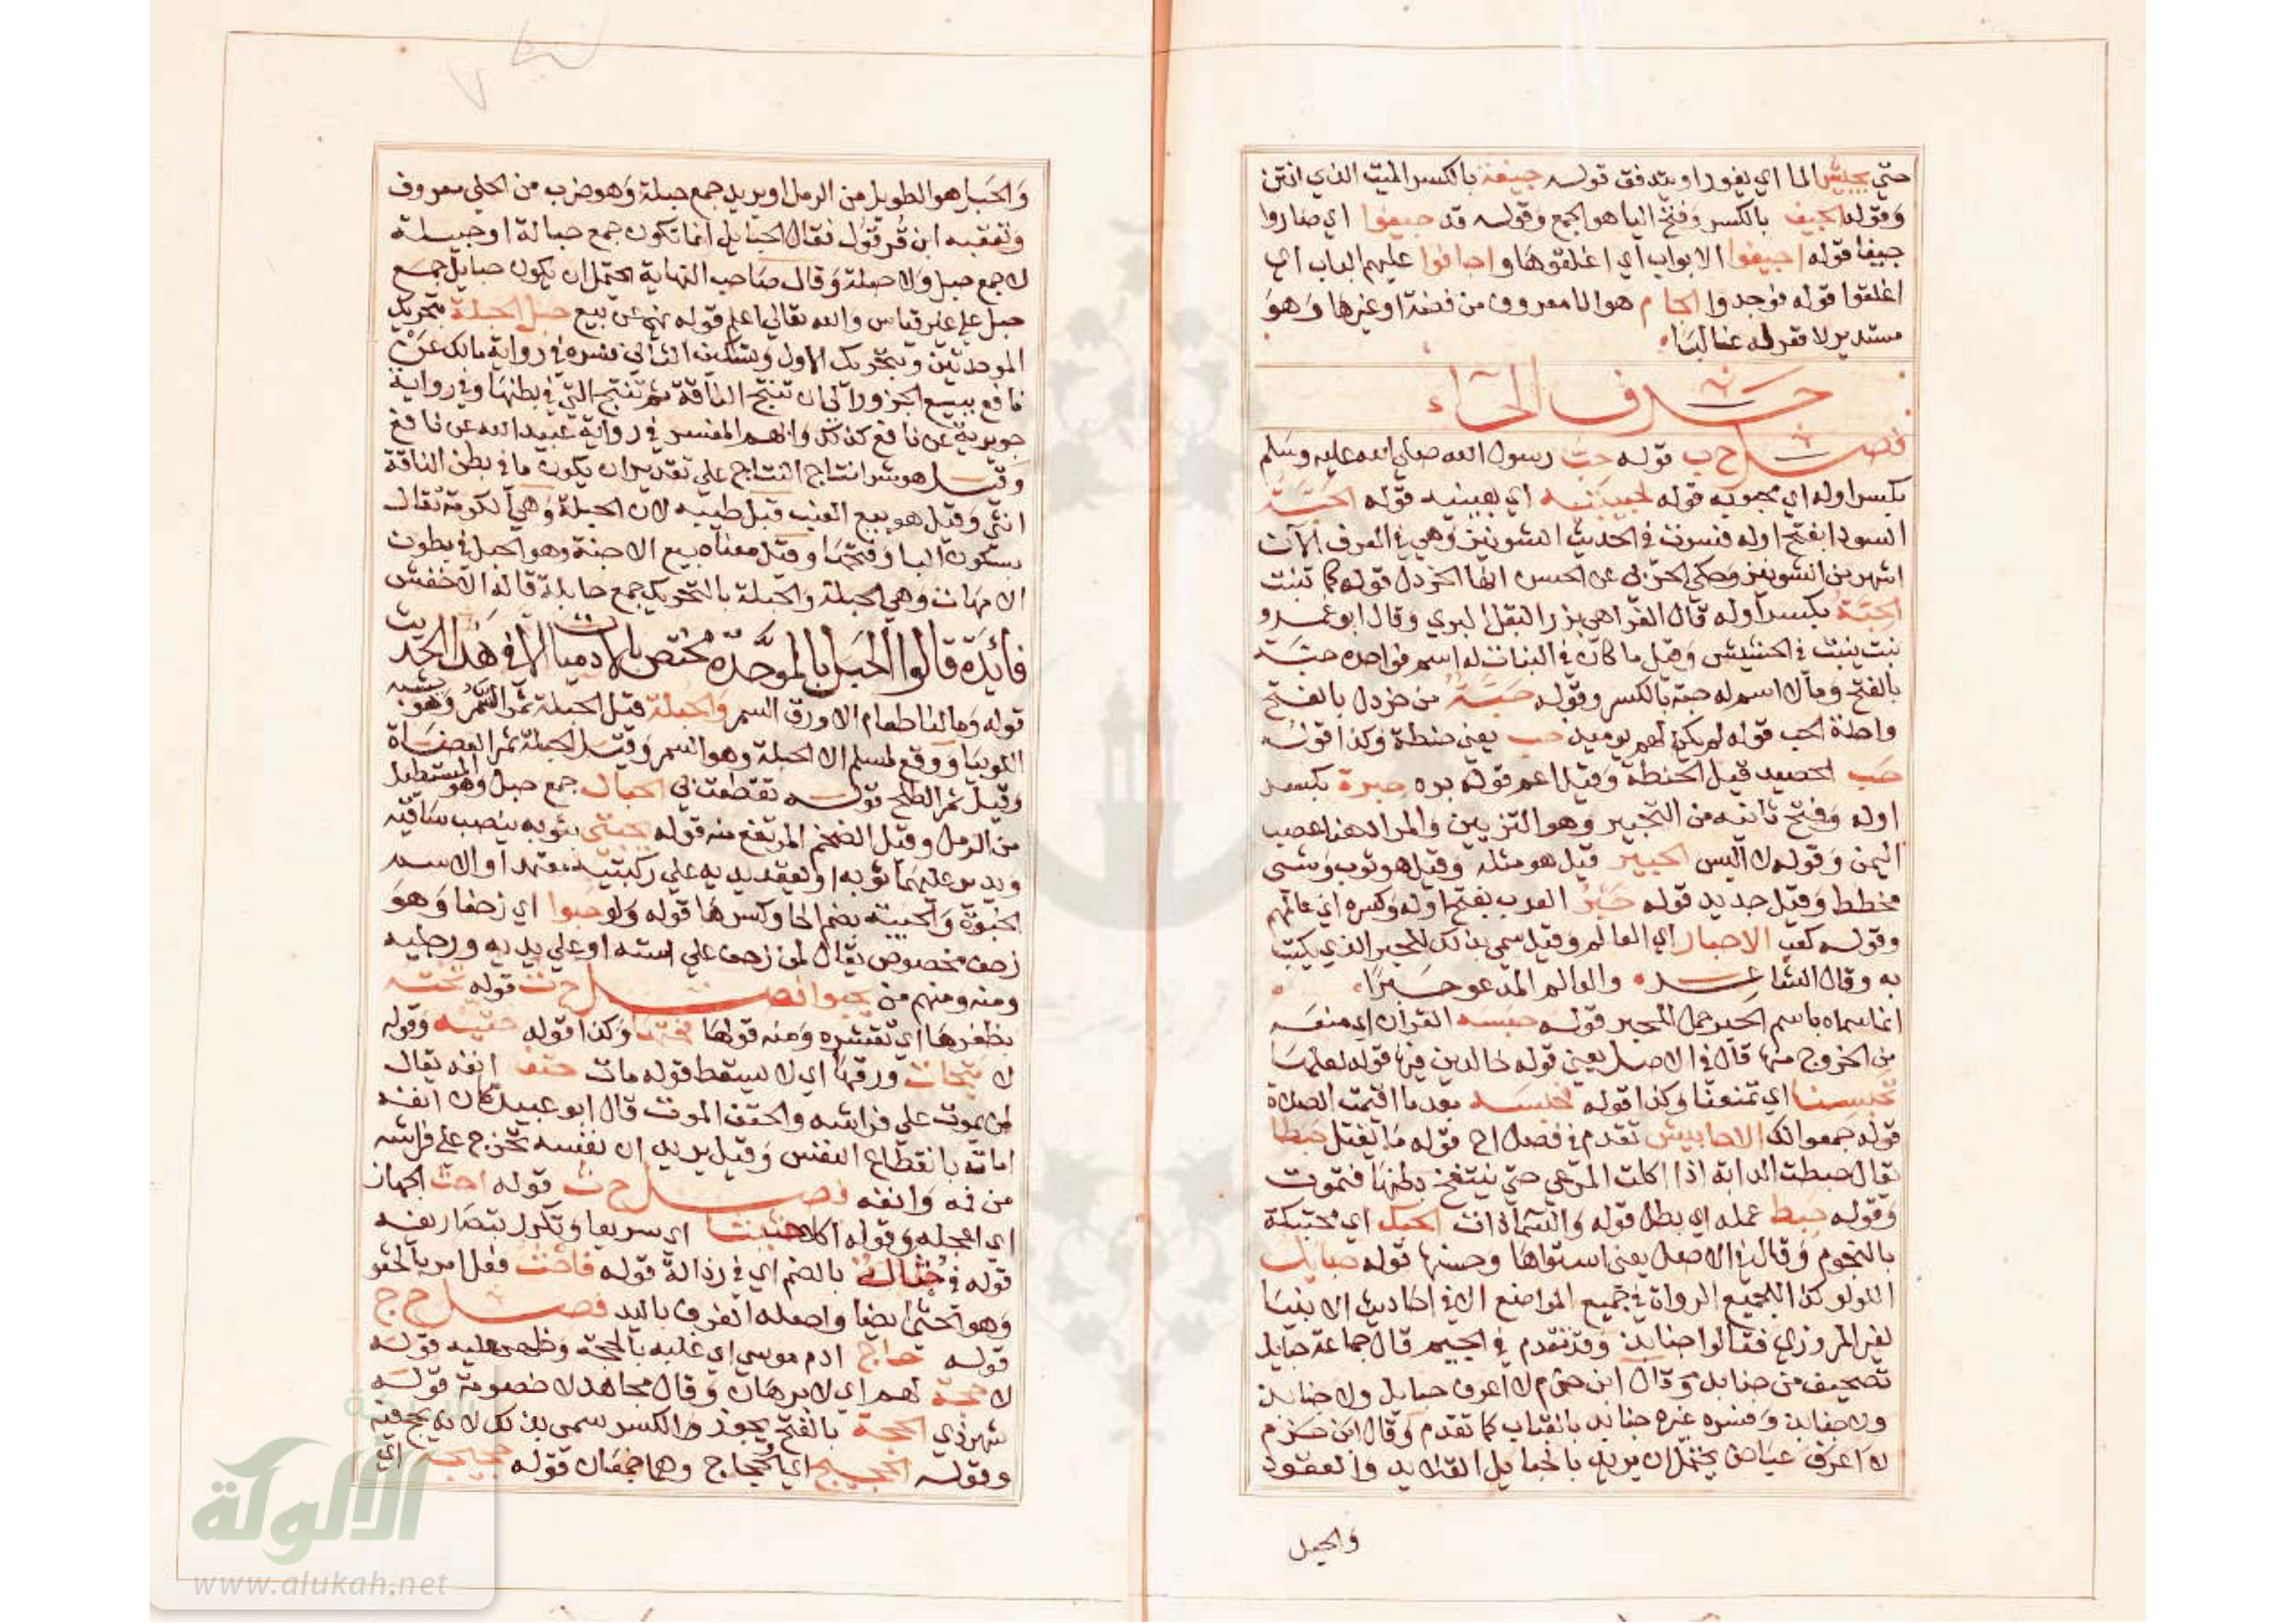 حتي يجيش الما اي يفور او يتدفق قوله جيفة بالكسر الميت الذي انتن
وقوله الجيف بالكسر وفتح اليا هو الجمع وقوله قد جيفوا اي صاروا
جيفا قوله اجيفوا الابواب اي اغلقوها واجافوا عليهم الباب اي
اغلقوا قوله فوجدوا الجام هو انا معروف من فضة او غيرها وهو
مستدير لا قعر له غالبا
حرف الحاء
فصل ح ب قوله حب رسول الله صلي الله عليه وسلم
بكسر اوله اي محبوبه قوله لحبيبتيه اي بعينيه قوله الحبة
السودا بفتح اوله فسرت في الحديث الشونيز وهي في العرف الآن
اشهر من الشونيز وحكي الحربي عن الحسن انها الخردل قوله كما تنبت
الحبة بكسر اوله قال الفرا هي بزر البقل البري وقال ابو عمرو
نبت ينبت في الحشيش وقيل ما كان في النبات له اسم فواحده حبة
بالفتح وما لا اسم له حبة بالكسر وقوله حبة من خردل بالفتح
واحدة الحب قوله لم يكن لهم يوميذ حب يعني حنطة وكذا قوله
حب الحصيد قيل الحنطة وقيل اعم قوله برد حبرة بكسر
اوله وفتح ثانيه من التحبير وهو التزيين والمراد هنا عصب
اليمن وقوله لا البس الحبير قيل هو مثله وقيل هو ثوب وشي
مخطط وقيل جديد قوله حبر العرب بفتح اوله وكسره اي عالمهم
وقوله كعب الاحبار اي العالم وقيل سمي بذلك للحبر الذي يكتب
به وقال الشاعر والعالم المدعو حبرا
انما سماه باسم الحبر حمل المحبر قوله حبسه القران اي منعه
من الخروج منها قال في الاصل يعني قوله خالدين فيها قوله لعلها
تحبسنا اي تمنعنا وكذا قوله فحبسه بعد ما اقيمت الصلاة
قوله جمعوا لك الاحابيش تقدم في فصل اح قوله ما يقتل حبطا
يقال حبطت الدابة اذا اكلت المرعي حتي ينتفخ بطنها فتموت
وقوله حبط عمله اي بطل قوله والسماء ذات الحبك اي محتبكة
بالنجوم وقال في الاصل يعني استواها وحسنها قوله حبايل
اللولو كذا لجميع الرواة في جميع المواضع الا في احاديث الانبيا
لغير المروزي فقالوا جنابذ وقد تقدم في الجيم قال جماعة حبايل
تصحيف من جنابذ وقال ابن حزم لا اعرف حبايل ولا جنابذ
ولا جنابذ وفسره غيره جنابذ بالقباب كما تقدم وقال ابن حزم
لا اعرف عياض يحتمل ان يريد بالحبايل القلايد والعقود
والحبل
والحبل هو الطويل من الرمل او يريد جمع حبلة وهو ضرب من الحلي معروف
وتعقبه ابن قرقول فقال الحبايل انما تكون جمع حبالة او حبيلة
لا جمع حبل ولا حبلة وقال صاحب النهاية يحتمل ان يكون حبايل جمع
حبل علي غير قياس والله تعالي اعلم قوله نهي عن بيع حبل الحبلة بتحريك
الموحدتين وبتحريك الاول وتسكين الثاني فسره في رواية مالك عن
نافع ببيع الجزور الي ان تنتج الناقة ثم تنتج التي في بطنها وفي رواية
جويرية عن نافع كذلك وابهم المفسر في رواية عبيد الله عن نافع
وقيل هو شرا نتاج النتاج علي تقدير ان يكون ما في بطن الناقة
انثي وقيل هو بيع العنب قبل طيبه لان الحبلة وهي الكرمة تقال
بسكون البا وفتحها وقيل معناه بيع الاجنة وهو الحبل في بطون
الامهات وهي الحبلة والحبلة بالتحريك جمع حابلة قاله الاخفش
فائدة قالوا الحبل بالموحدة مختص بالادميات الا في هذا الحديث
قوله وما لنا طعام الا ورق السمر والحبلة قيل الحبلة ثمر السمر وهو يشبه
اللوبيا ووقع لمسلم الا الحبلة وهو السمر وقيل الحبلة ثمر العضاة
وقيل ثمر الطلح قوله تقطعت بي الحبال جمع حبل وهو المستطيل
من الرمل وقيل الضخم المرتفع منه قوله يحتبي بثوبه ينصب ساقيه
ويدير عليهما ثوبه او يعقد يديه علي ركبتيه معتمدا والاسم
الحبوة والحبية بضم الحا وكسرها قوله ولو حبوا اي زحفا وهو
زحف مخصوص يقال لمن زحف علي استه او علي يديه ورجليه
ومنه ومنهم من يحبوا فصل ح ت قوله تحته
بظفرها اي تقشره ومنه قولها فحتها وكذا قوله حتيه وقوله
لا يتحات ورقها اي لا يسقط قوله مات حتف انفه يقال
لمن يموت علي فراشه والحتف الموت قال ابو عبيد كان انفه
اماته بانقطاع النفس وقيل يريد ان نفسه تخرج علي فراشه
من فمه وانفه فصل ح ث قوله احث الجهاز
اي اعجله وقوله اكلا حثيثا اي سريعا وتكرر بتصاريفه
قوله في حثالة بالضم اي في رذالة قوله فاحث فعل امر بالحثو
وهو الحثي ايضا واصله الغرف باليد فصل ح ج
قوله حاج ادم موسي اي غلبه بالحجة وظهر عليه قوله
لا حجة لهم اي لا برهان وقال مجاهد لا خصومة قوله
شهر ذي الحجة بالفتح يجوز والكسر سمي بذلك لانه يحج فيه
وقوله الحجيج اي الحجاج وهما جمعان قوله حجيجه اي
الألوكة
www.alukah.net